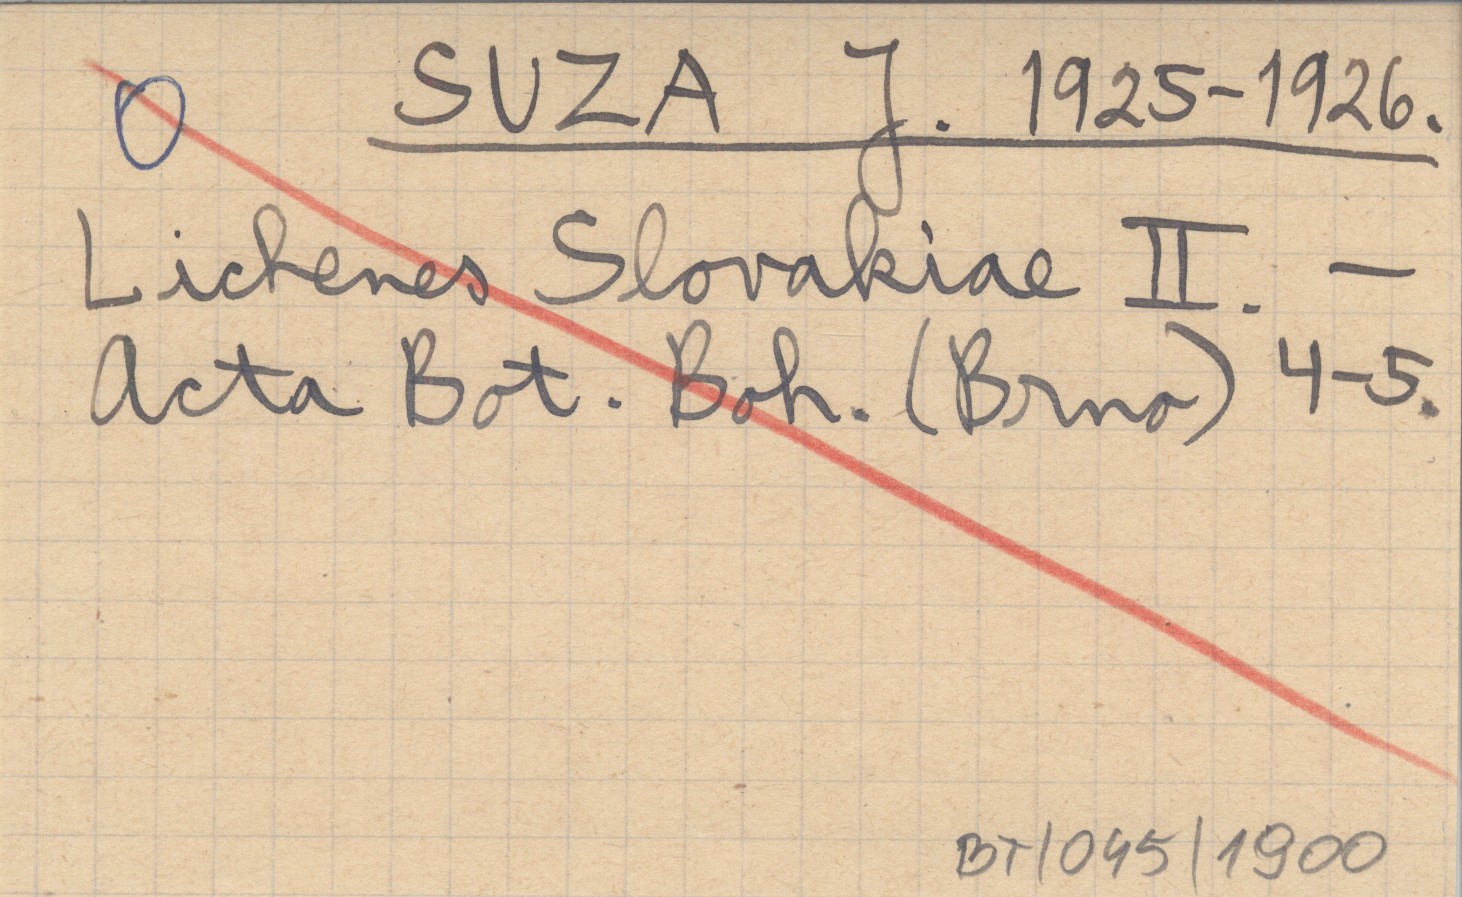 O SUZA J. 1925-1926.
Lichenes Slovakiae II. —
Acta Bot. Boh. (Brno) 4-5.
BT/045/1900